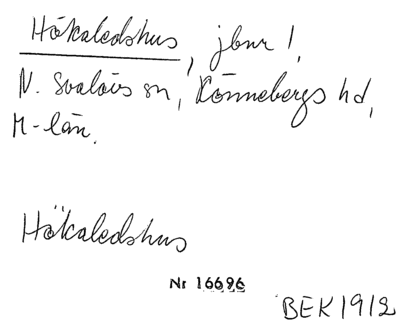 Hökaledshus, jbnr 1,
N. Svalövs sn, Rönnebergs hd,
M-län.
Hökaledshus
Nr 16696
BEK 1912